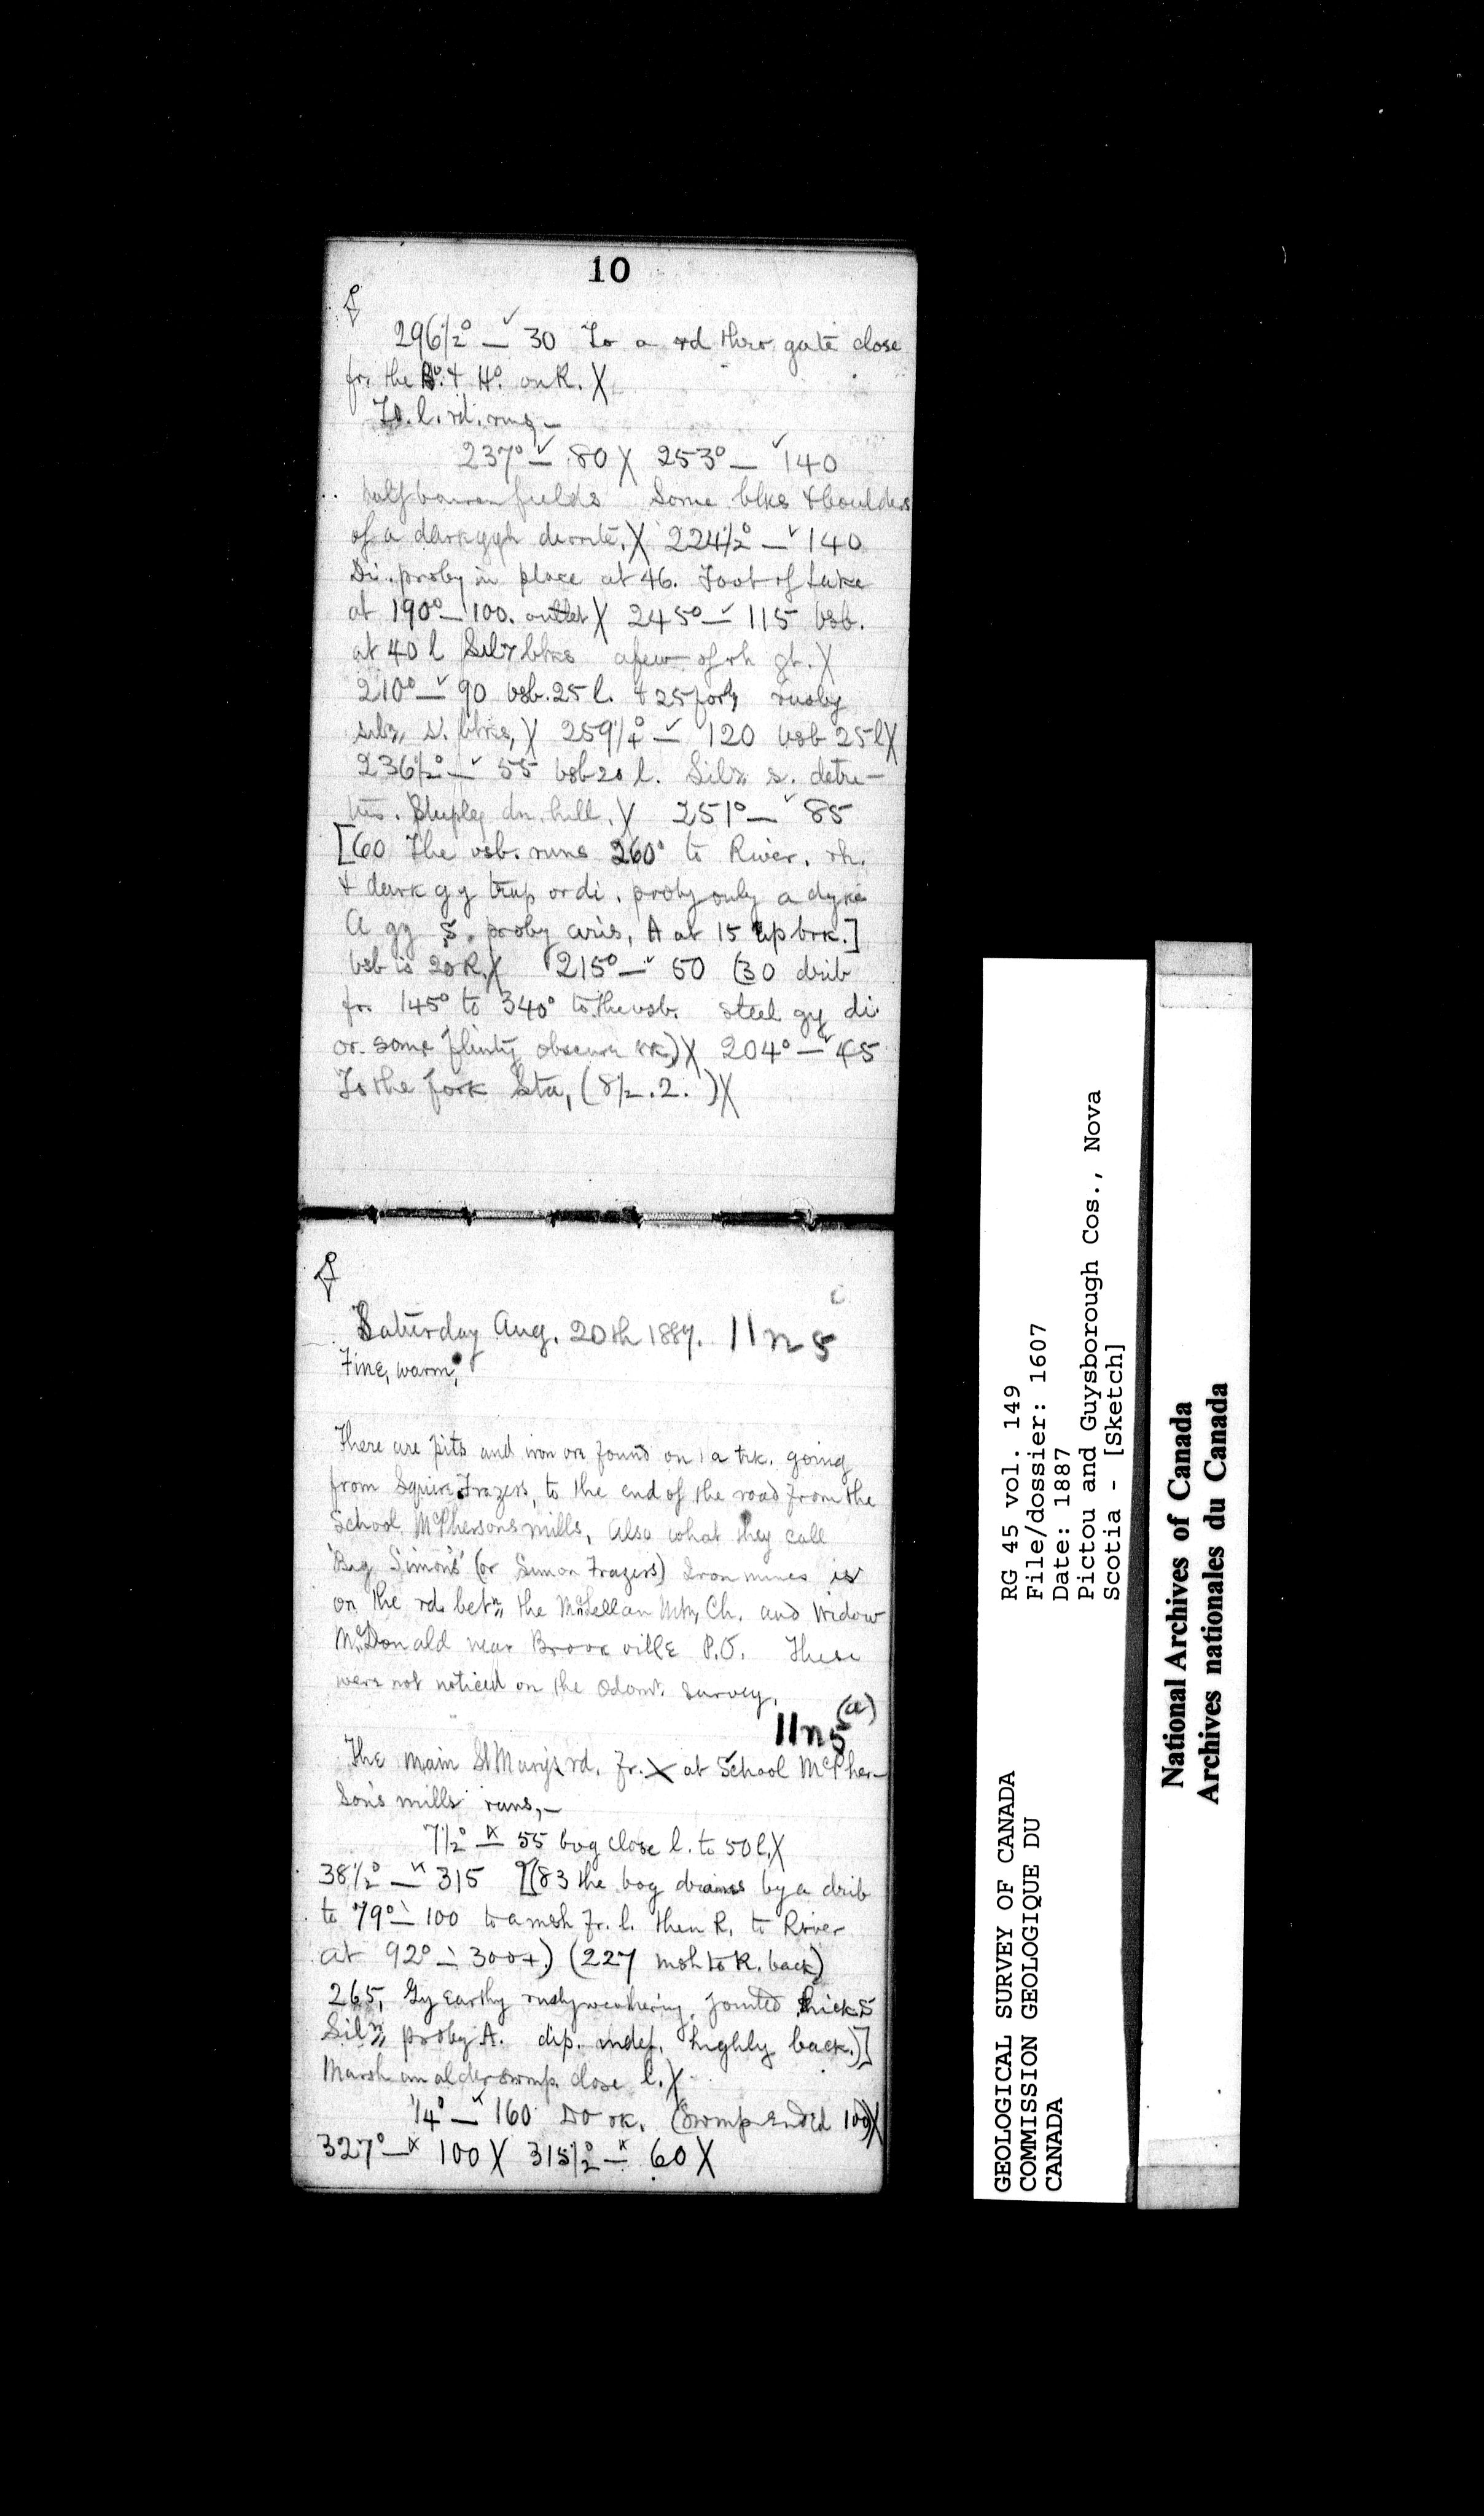 10
296½° — 30 To a rd thro gate close
fr. the Bn. & Ho. on R. X
To. l. rd. runs —
237° — 80 X 253° — 140
half barren fields Some blks & boulders
of a dark gyh diorite. X 224½° — 140
Di. proby in place at 46. Foot of Lake
at 190° — 100. outlet X 245° — 115 vsb.
at 40 l Siln blks a few of rh gt. X
210° — 90 vsb. 25 l. & 25 for
siln s. blks, X 259¼° — 120 vsb 25 l X
236½° — 55 vsb 20 l. Siln s. detri-
tus. Steeply dn. hill. X 251° — 85
[60 The vsb. runs 260° to River. rh.
& dark gy trap or di. proby only a dyke
A gy S. proby aris, A at 15 up brk.]
vsb is 20 R. X 215° — 50 (30 drib
fr. 145° to 340° to the vsb. steel gy di.
or some flinty obscure rk.) X 204° — 45
To the fork Sta, (8½. 2. ) X
Saturday Aug. 20th 1887. 11 n 5
Fine, warm,
There are pits and iron ore found on a trk. going
from Squire Frazers, to the end of the road from the
School McPhersons mills, Also what they call
'Big Simon's' (or Simon Frazers) Iron mines is
on the rd. betn the McLellan Mtn, Ch. and Widow
McDonald near Brookville P.O. These
were not noticed on the Odomr. survey.
11n5 (a)
The main St Marys rd. fr. X at School McPher-
sons mills runs, —
7½° — 55 bog close l. to 50 l. X
38½° — 315 [(83 the bog drains by a drib
to 79° — 100 to a msh fr. l. then R. to River
at 92° — 300+.) (227 msh to R. back)
265, Gy earthy rusty weathering, jointed thick S
Siln proby A. dip. indef. highly back.)]
Marsh an alder swmp. close l. X
¼° — 160 Do ok. (Swmp ended 100) X
327° — 100 X 315½° — 60 X
GEOLOGICAL SURVEY OF CANADA
COMMISSION GEOLOGIQUE DU
CANADA
RG 45 vol. 149
File/dossier: 1607
Date: 1887
Pictou and Guysborough Cos., Nova
Scotia - [Sketch]
National Archives of Canada
Archives nationales du Canada